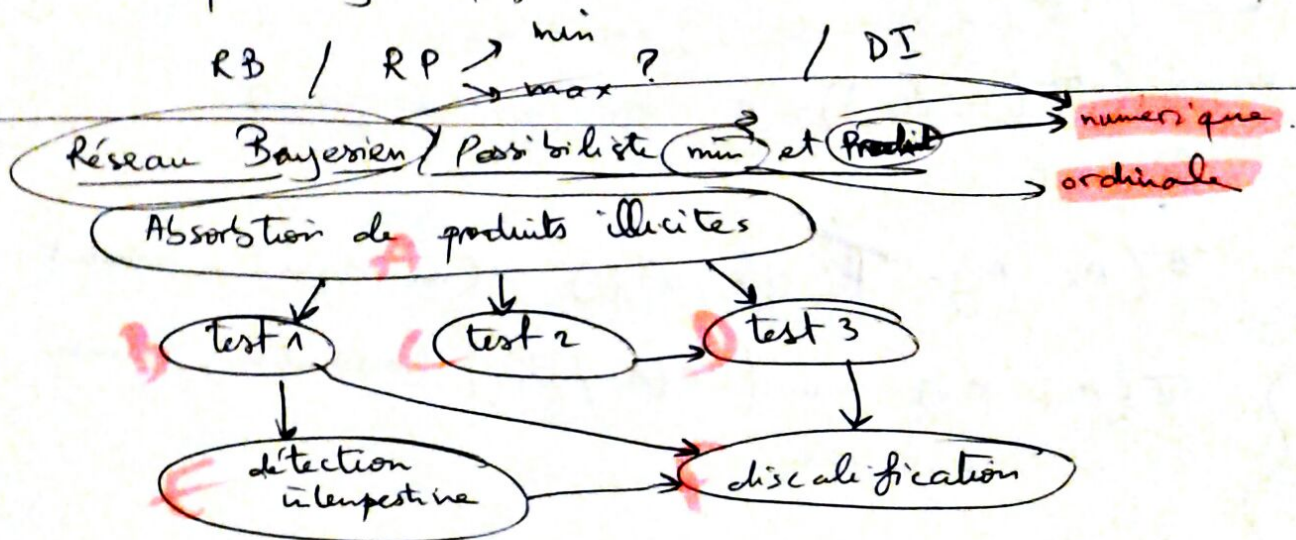 RB / RP min ? / DI
max
numérique
Réseau Bayesien / Possibiliste (min) et Produit
ordinale
Absorbtion de produits illicites
A
B test 1 C test 2 D test 3
E détection
intempestive
F discalification